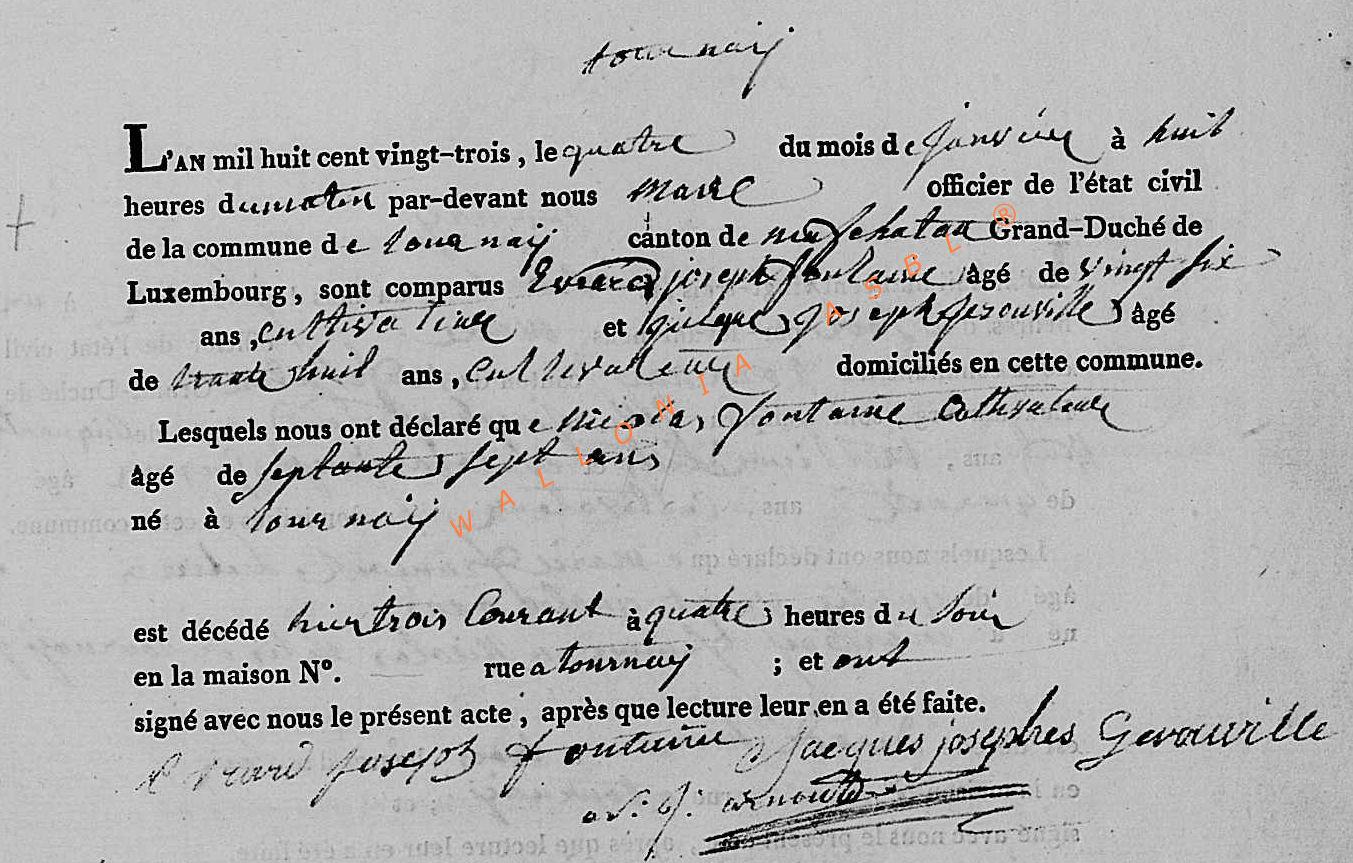 tournaÿ
L'AN mil huit cent vingt-trois, le quatre du mois de janvier à huit
heures du matin par-devant nous maire officier de l'état civil
de la commune de tournaÿ canton de neufchateau Grand-Duché de
Luxembourg, sont comparus Evrard joseph fontaine âgé de vingt six
ans, cultivateur et jacques joseph gerouville âgé
de trente huit ans, cultivateur domiciliés en cette commune.
Lesquels nous ont déclaré que Nicolas fontaine cultivateur
âgé de septante sept ans
né à tournaÿ
est décédé hier trois Courant à quatre heures du soir
en la maison N°. rue a tournaÿ ; et ont
signé avec nous le présent acte, après que lecture leur en a été faite.
Evrard joseph fontaine jacques josephes Gerouville
arnould
WALLONIA ASBL ®